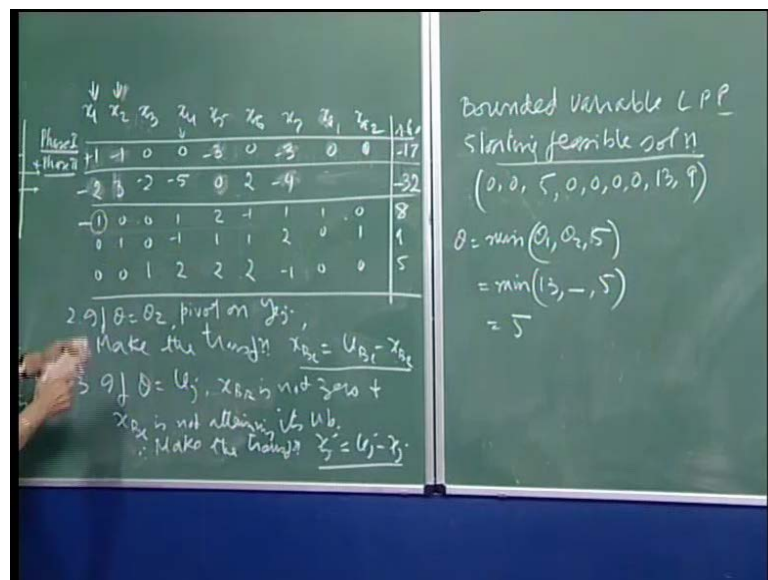 x₁ x₂ x₃ x₄ x₅ x₆ x₇ xa₁ xa₂ r.h.s
Phase I +1 -1 0 0 -3 0 -3 0 0 -17
+ Phase II -2 3 -2 -5 0 2 -4 -32
-1 0 0 1 2 -1 1 1 0 8
0 1 0 -1 1 1 2 0 1 9
0 0 1 2 2 2 -1 0 0 5
2. If θ = θ₂, pivot on yrj.
Make the transfn x_Br = U_Br - x_Br
3 If θ = Uj, x_Br is not zero +
x_Br is not attaining its ub.
∴ Make the transfn xj' = Uj - xj.
Bounded variable LPP
Starting feasible soln
(0, 0, 5, 0, 0, 0, 0, 13, 9)
θ = min(θ₁, θ₂, 5)
= min(13, -, 5)
= 5